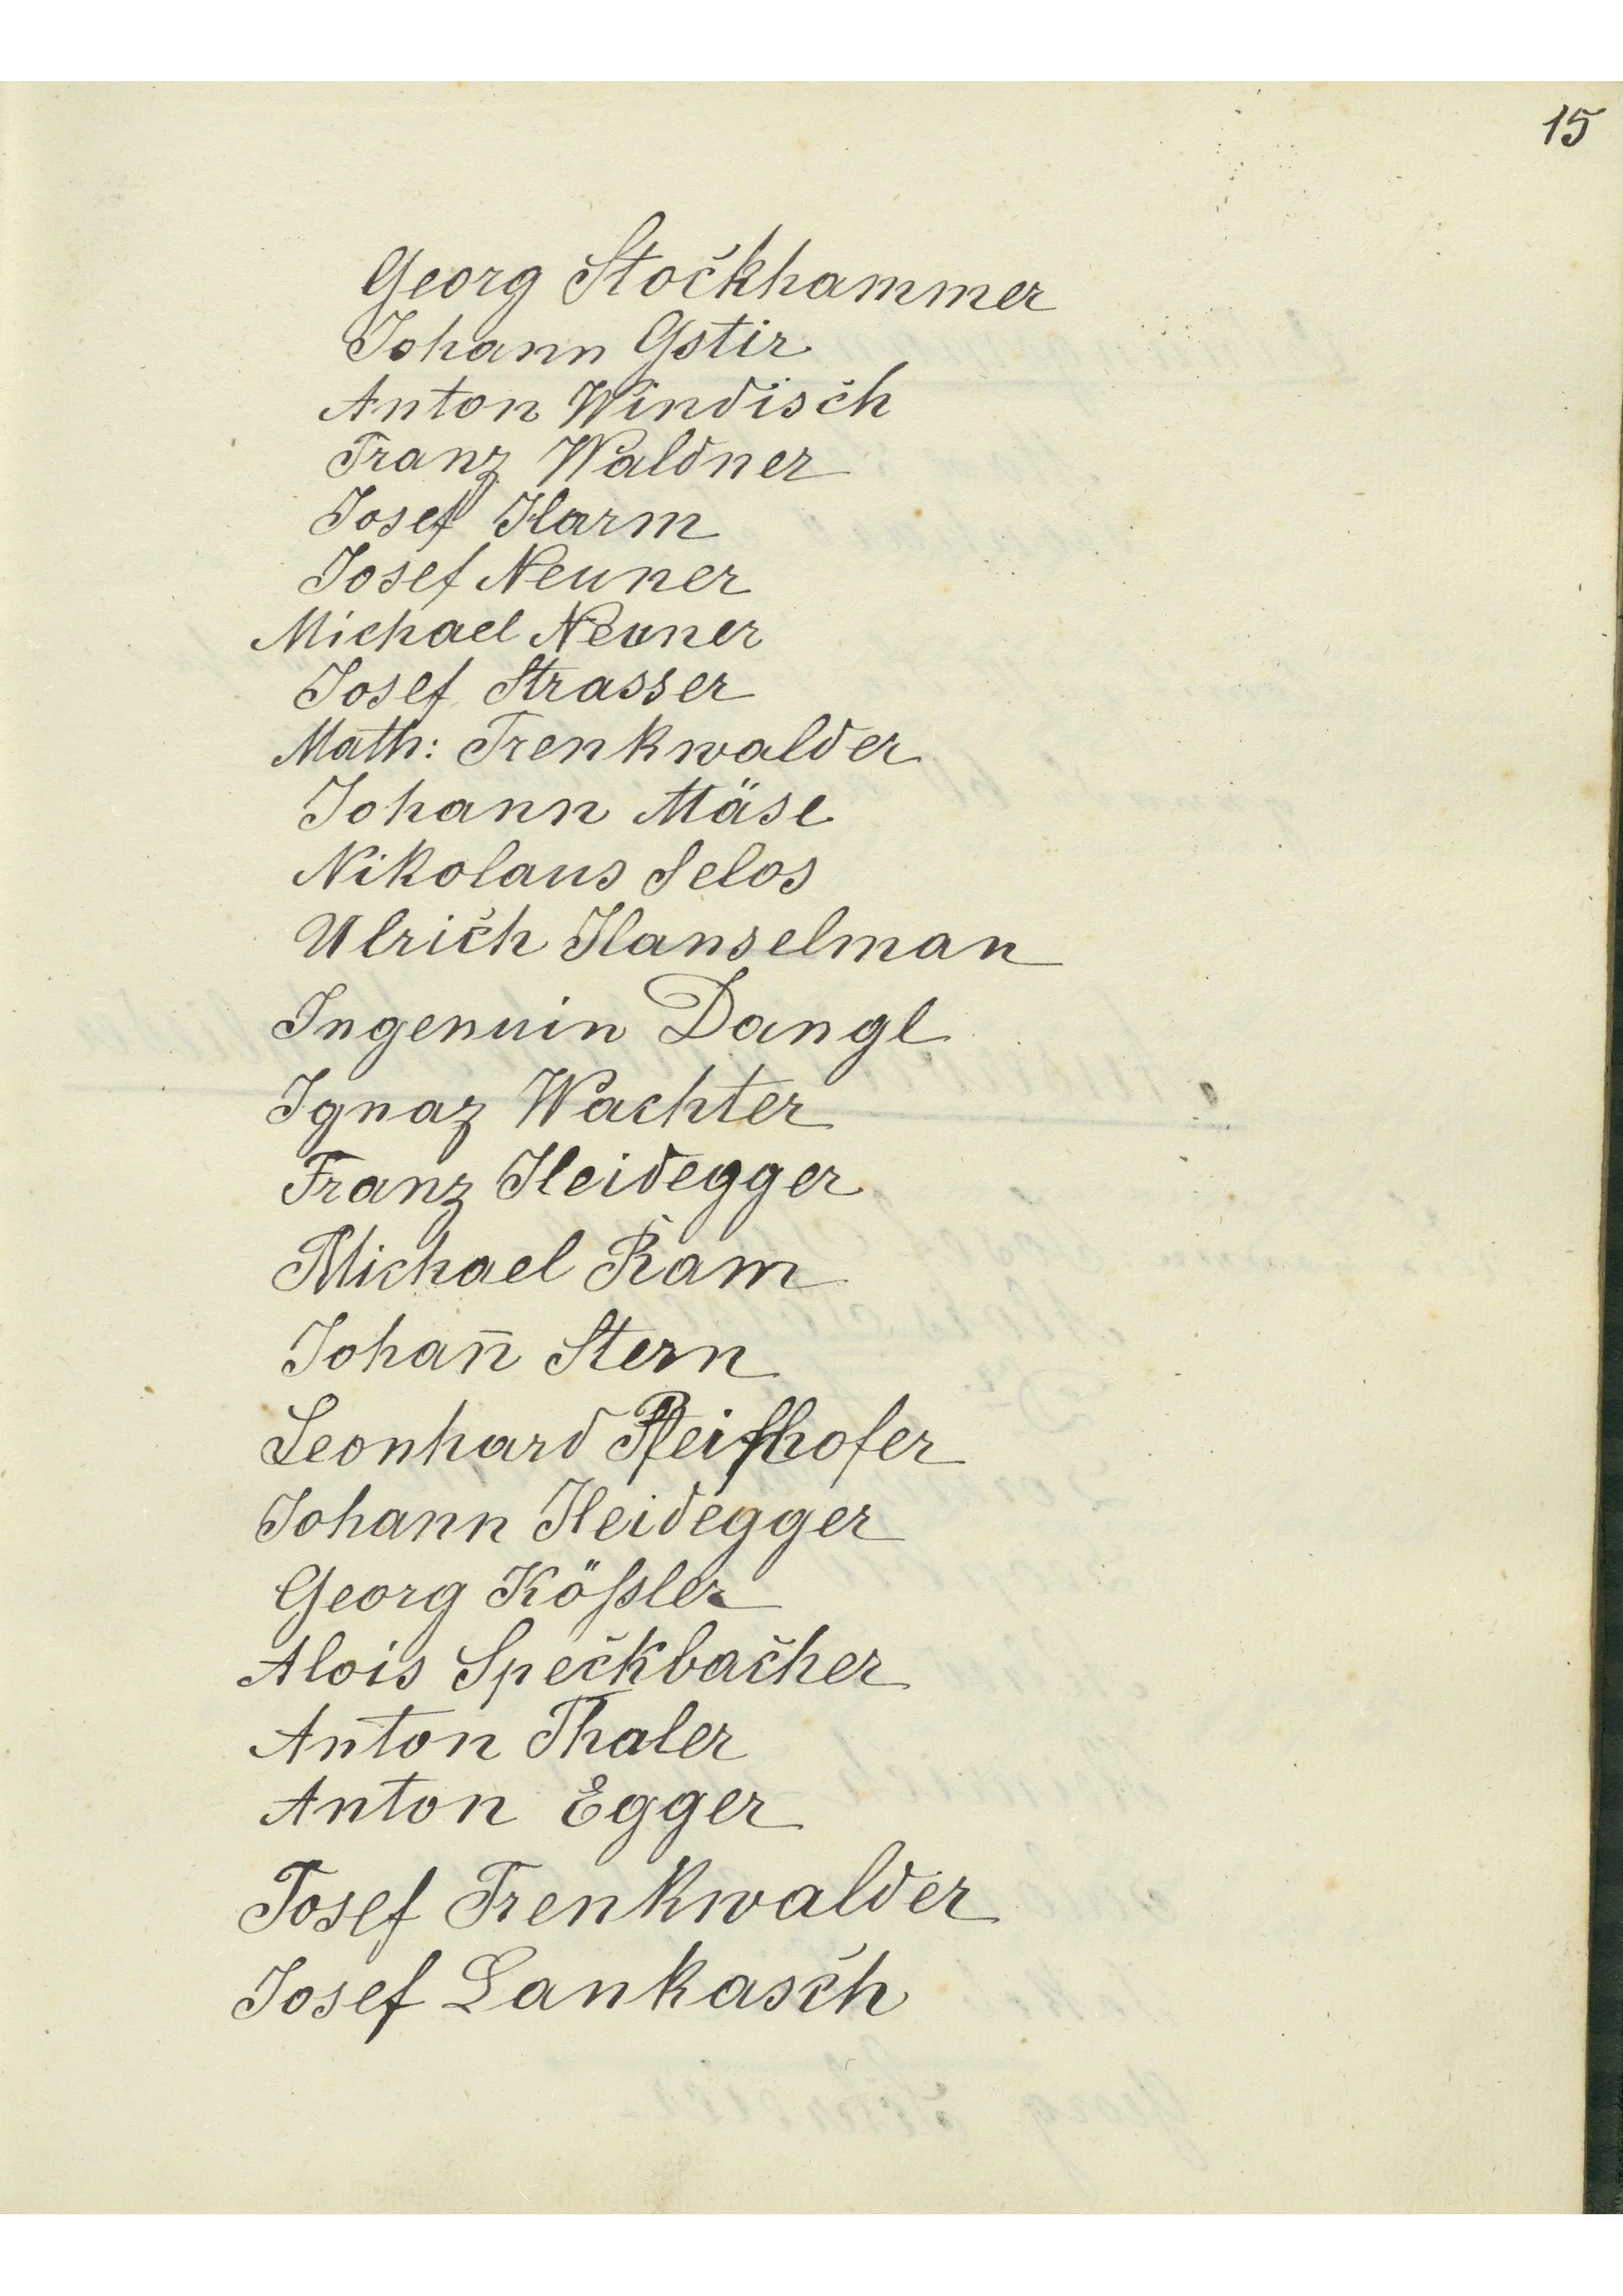 15
Georg Stockhammer
Johann Gstir
Anton Windisch
Franz Waldner
Josef Harm
Josef Neuner
Michael Neuner
Josef Strasser
Math: Trenkwalder
Johann Mäse
Nikolaus Selos
Ulrich Hanselman
Ingenuin Dangl
Ignaz Wachter
Franz Heidegger
Michael Ram
Johan̄ Stern
Leonhard Pfeifhofer
Johann Heidegger
Georg Kößler
Alois Speckbacher
Anton Thaler
Anton Egger
Josef Trenkwalder
Josef Lankasch